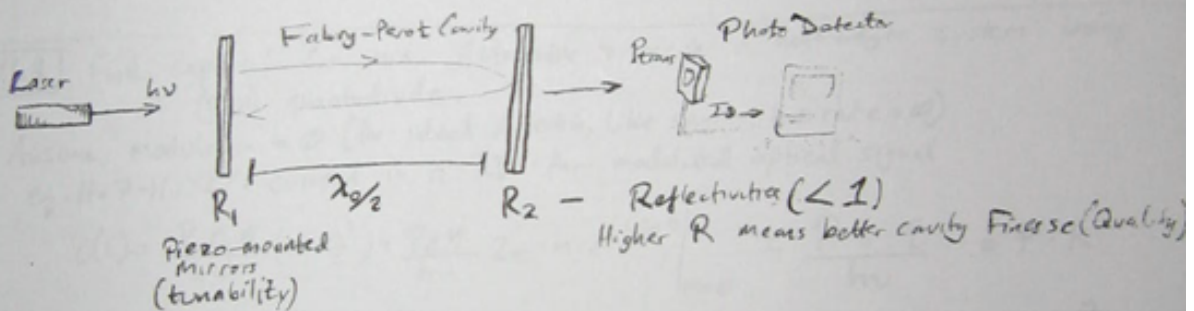 Fabry-Perot Cavity
Photo Detector
Laser
hν
Ptrans
I₀ →
λ₀/2
R₁
R₂ - Reflectivities (< 1)
Higher R means better cavity Finesse (Quality)
Piezo-mounted
Mirrors
(tunability)